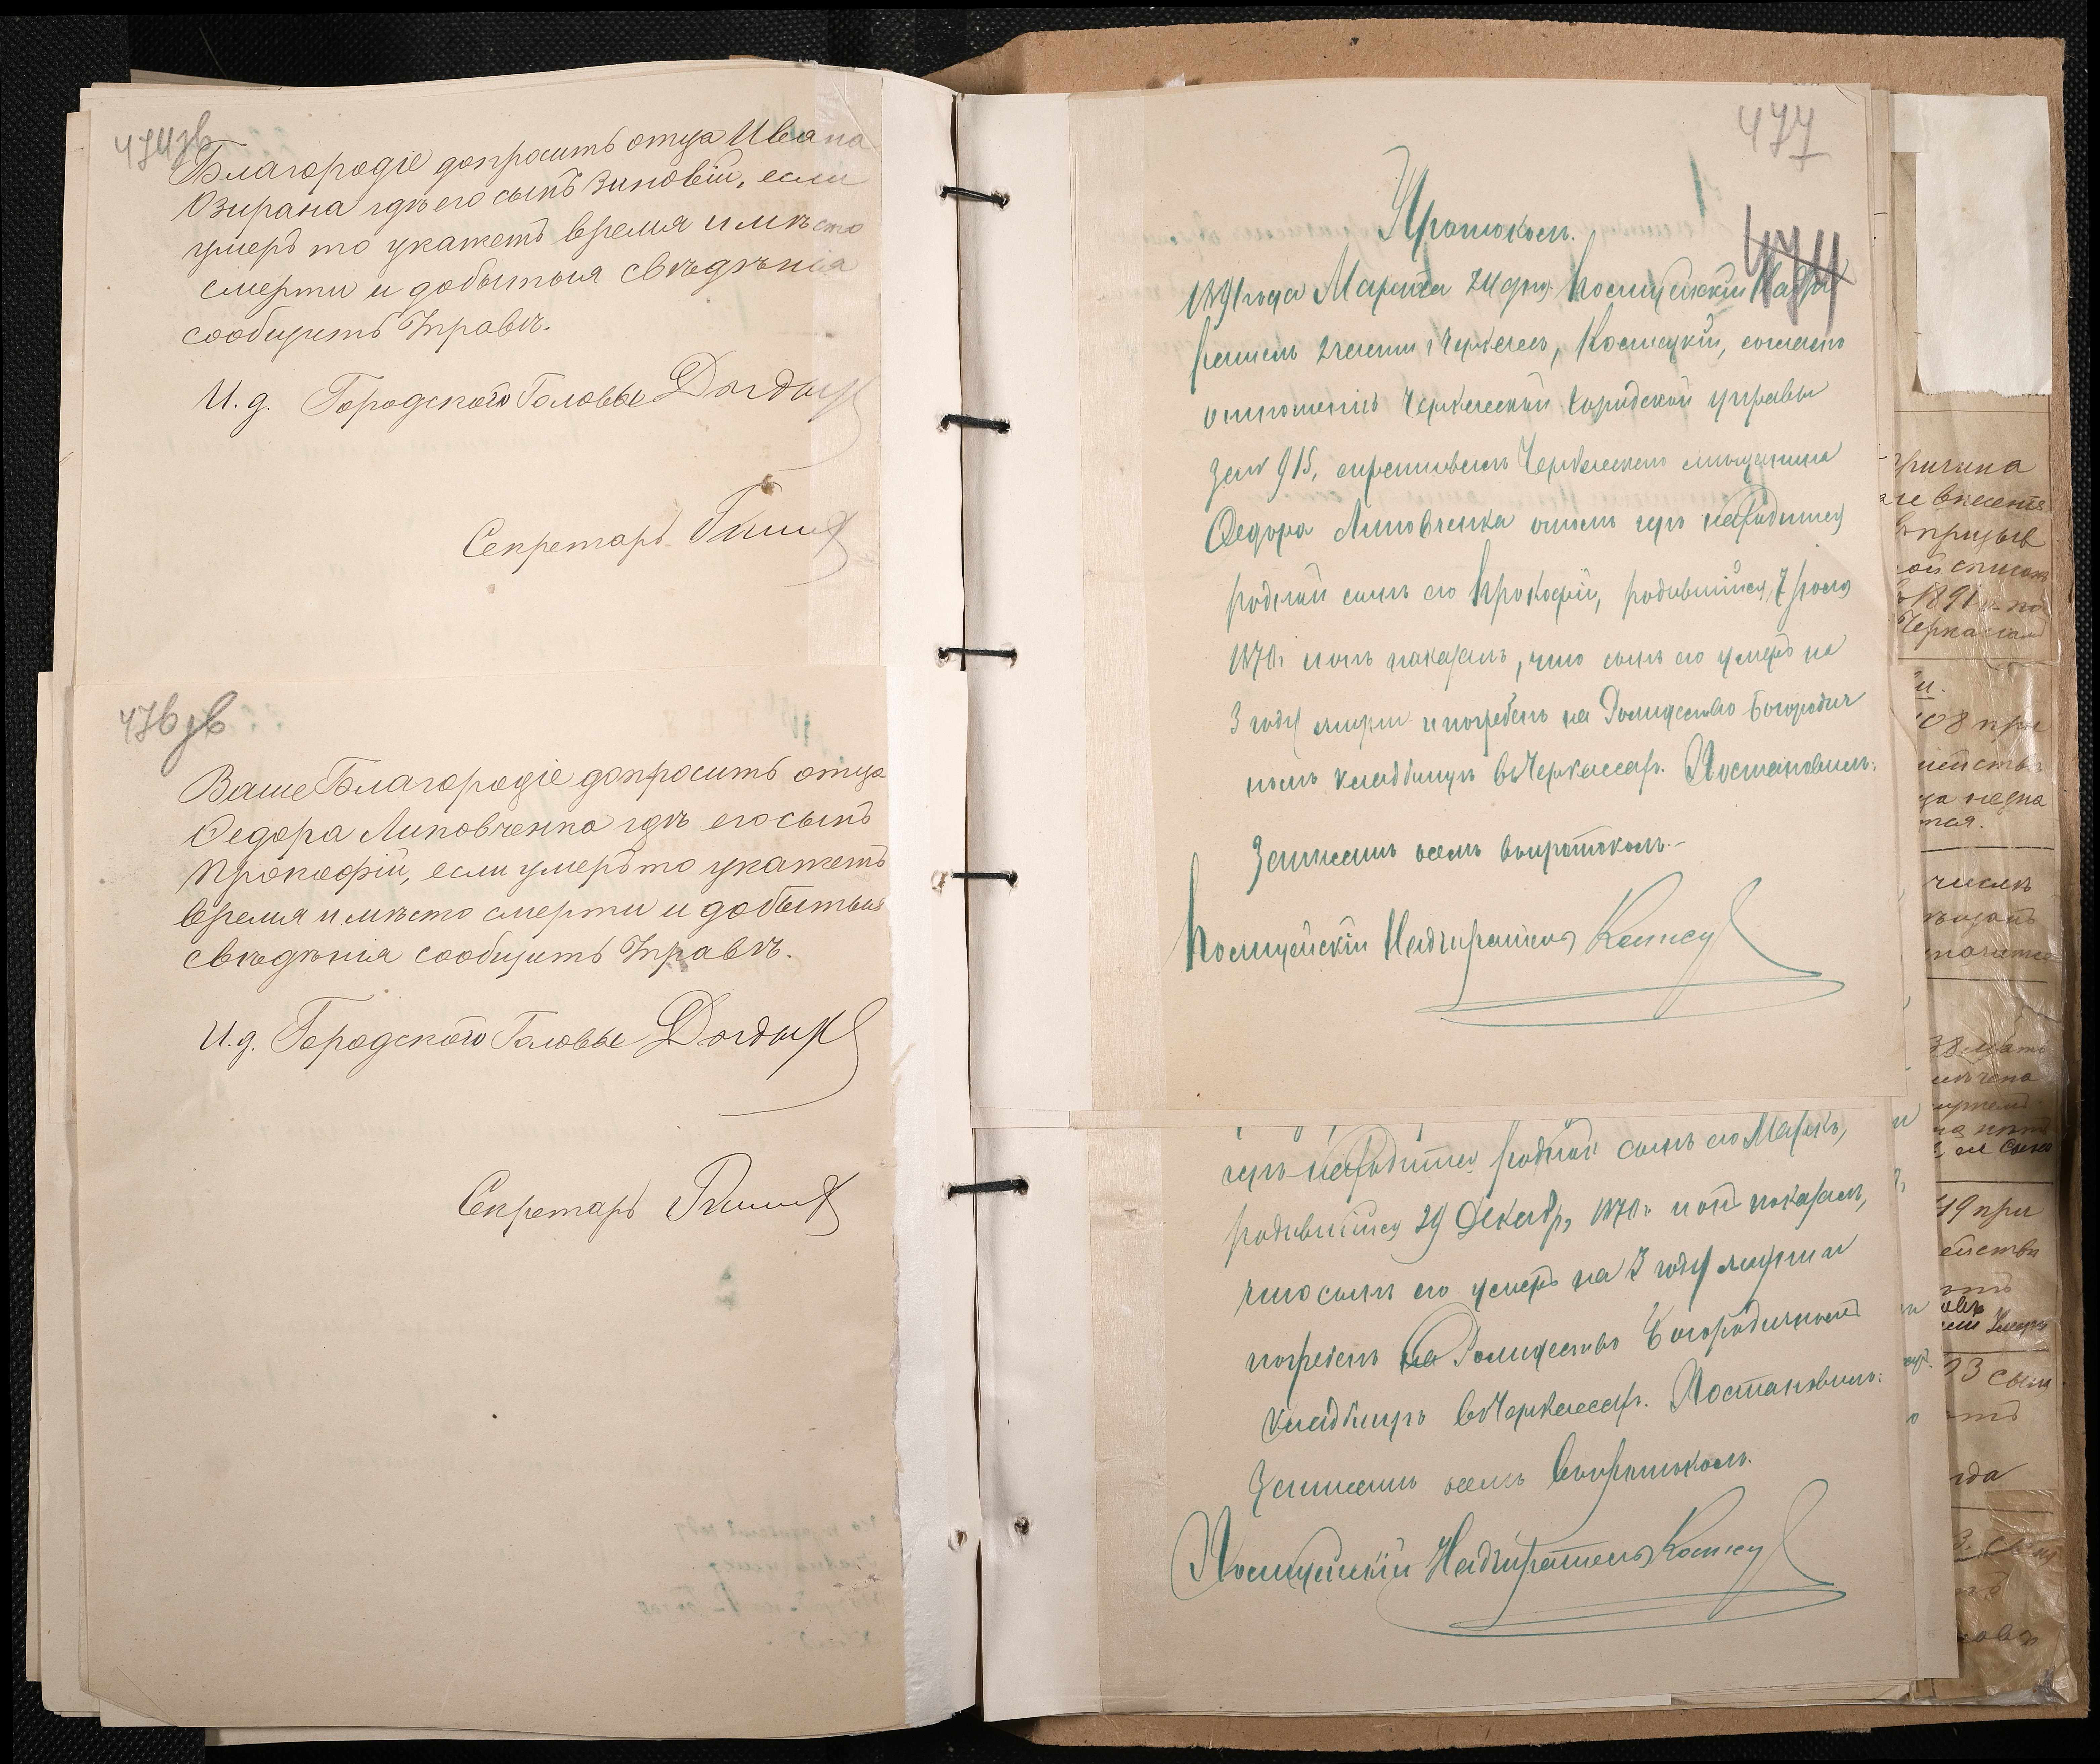 474зв
Благородіе допросить отца Ивана
Озирана гдѣ его сынъ Зиновій, если
умеръ то укажетъ время и мѣсто
смерти и добытыя свѣдѣнія
сообщить Управѣ.
И. д. Городского Головы
Секретарь
476зв
Ваше Благородіе допросить отца
Федора Липовченка гдѣ его сынъ
Прокофій, если умеръ то укажетъ
время и мѣсто смерти и добытыя
свѣдѣнія сообщить Управѣ.
И. д. Городского Головы
Секретарь
477
474
Протоколъ.
1891 года Марта 24 дня. Полицейскій Надзи
ратель 2 части г. Черкассъ, согласно
отношенію Черкасской Городской управы
за № 915, спрашивалъ Черкасскаго мѣщанина
Федора Липовченка о томъ гдѣ находится
родной сынъ его Прокофій, родившійся 7
1870 г. и онъ показалъ, что сынъ его умеръ на
3 году жизни и погребенъ на Рождество Богородич
номъ кладбищѣ въ Черкассах. Постановилъ:
Записать о семъ въ протоколъ.-
Полицейскій Надзиратель
гдѣ находится родной сынъ его Маркъ,
родившійся 29 Декабр, 1870 г. и онъ показалъ,
что сынъ его умеръ на 3 году жизни и
погребенъ на Рождество Богородичномъ
кладбищѣ въ Черкассах. Постановилъ:
Записать о семъ въ протоколъ.
Полицейскій Надзиратель
внесенія
въ призыв
1891 г. по
08 при
числѣ
49 при
93 сын